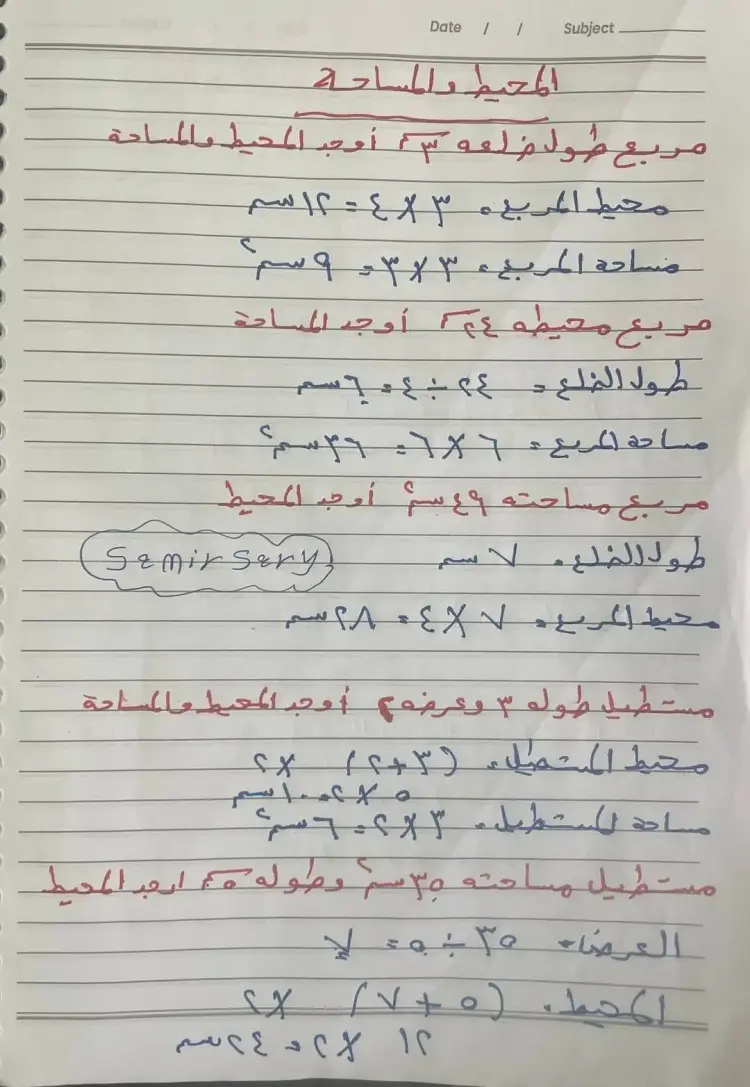 Date / / Subject
المحيط والمساحة
مربع طول ضلعه ٣م أوجد المحيط والمساحة
محيط المربع = ٣ × ٤ = ١٢ سم
مساحة المربع = ٣ × ٣ = ٩ سم٢
مربع محيطه ٢٤م أوجد المساحة
طول الضلع = ٢٤ ÷ ٤ = ٦ سم
مساحة المربع = ٦ × ٦ = ٣٦ سم٢
مربع مساحته ٤٩ سم٢ أوجد المحيط
طول الضلع = ٧ سم
Semir Sery
محيط المربع = ٧ × ٤ = ٢٨ سم
مستطيل طوله ٣ وعرضه ٢ أوجد المحيط والمساحة
محيط المستطيل = (٣ + ٢) × ٢
٥ × ٢ = ١٠ سم
مساحة المستطيل = ٣ × ٢ = ٦ سم٢
مستطيل مساحته ٣٥ سم٢ وطوله ٥م اوجد المحيط
العرض = ٣٥ ÷ ٥ = ٧
المحيط = (٥ + ٧) × ٢
١٢ × ٢ = ٢٤ سم